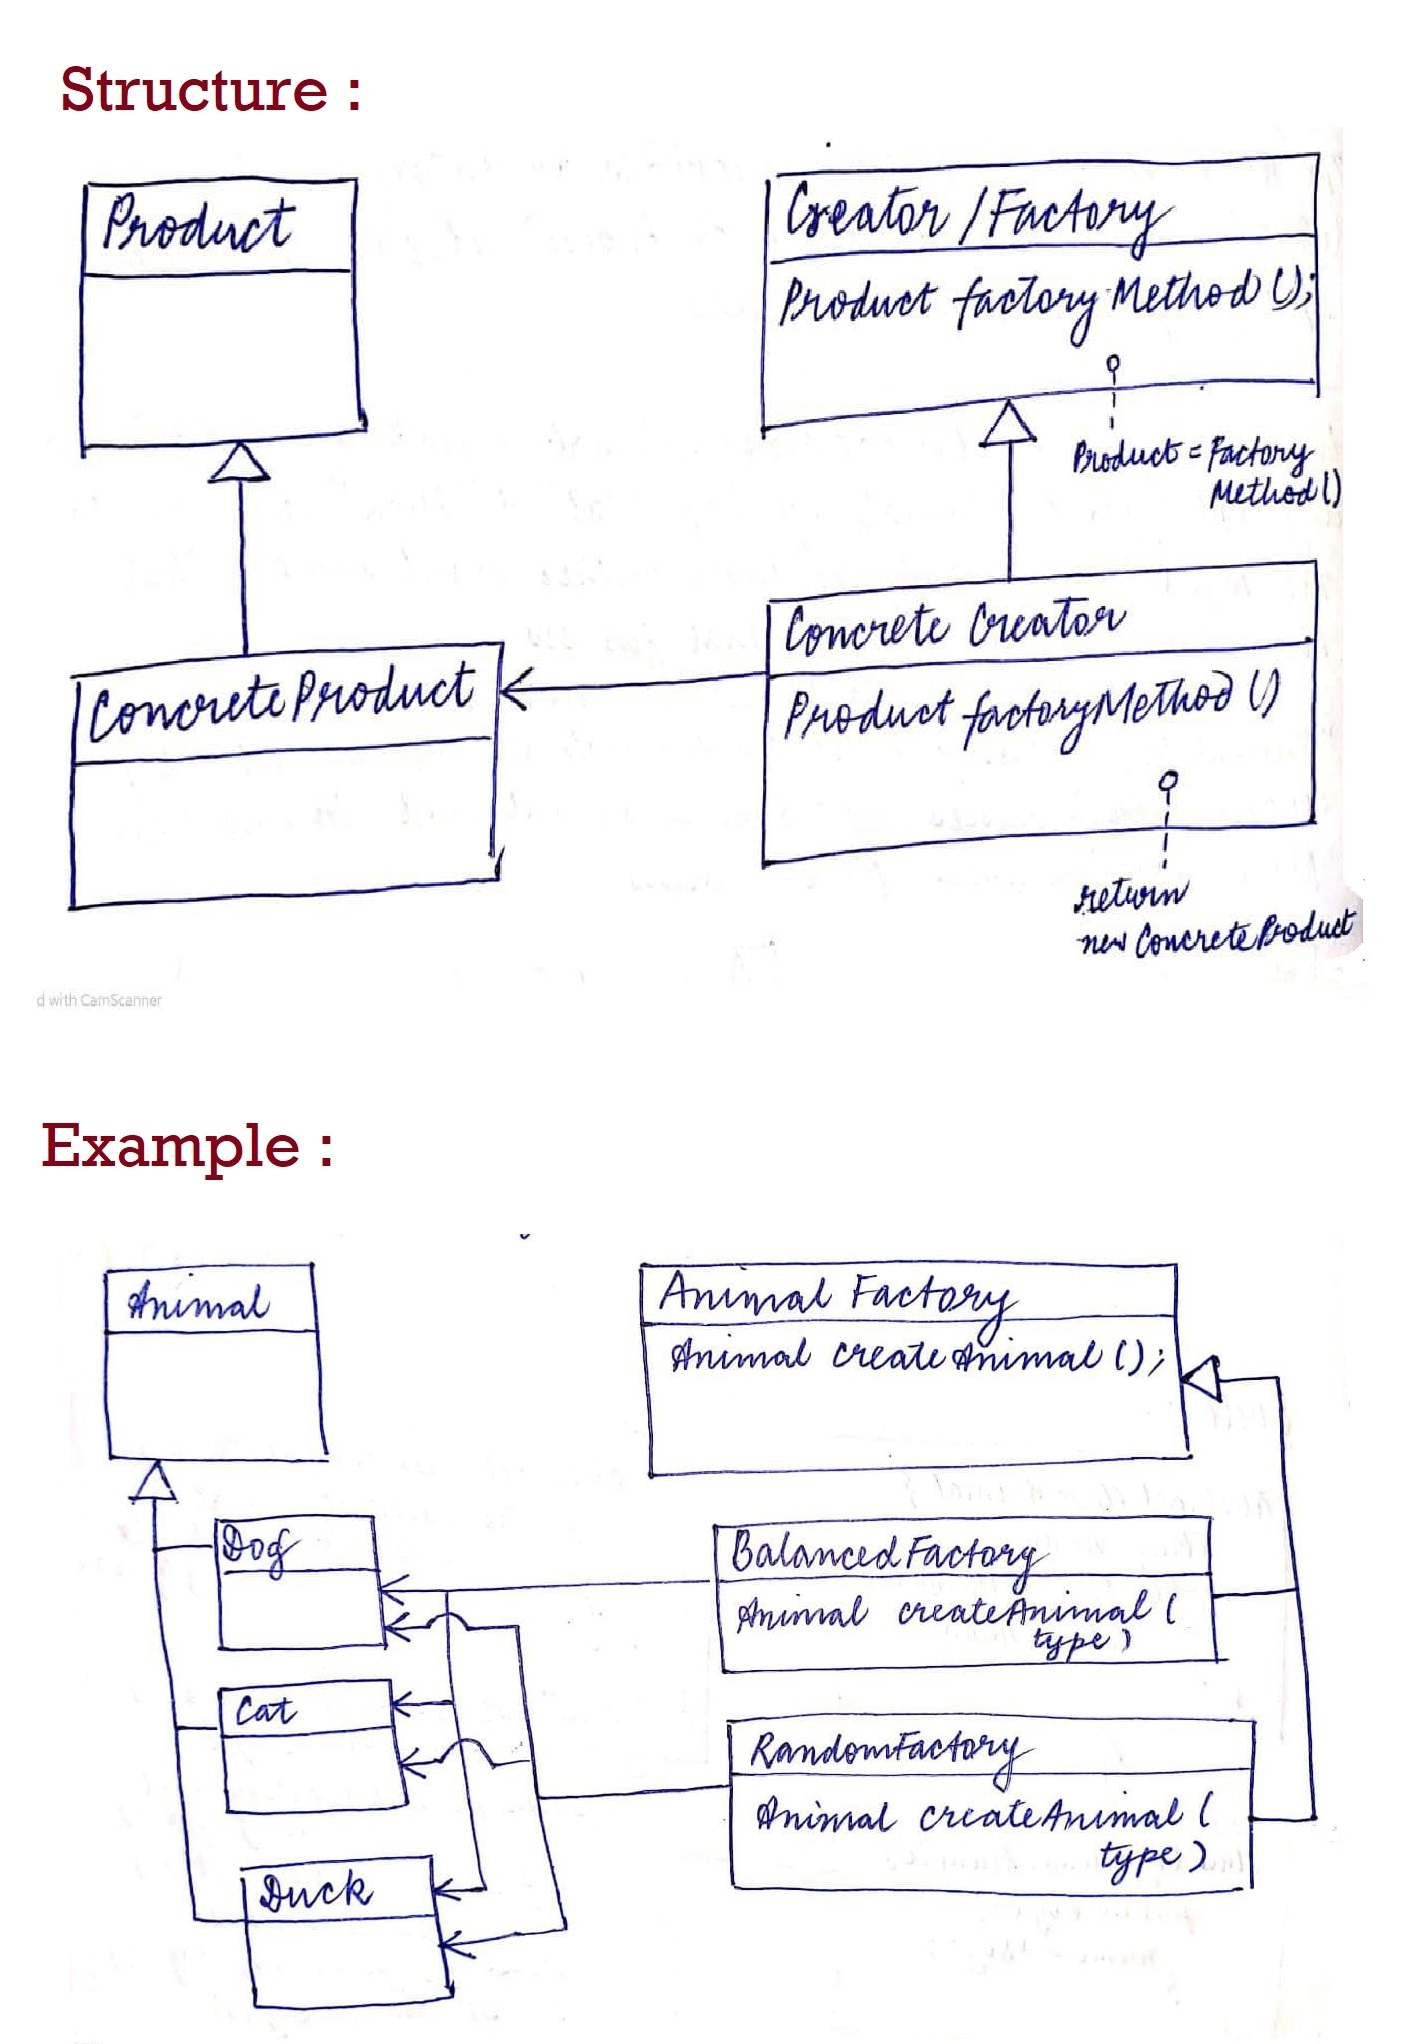 Structure :
Product
Creator / Factory
Product factoryMethod ();
Product = Factory
Method ()
Concrete Creator
ConcreteProduct
Product factoryMethod ()
return
new ConcreteProduct
d with CamScanner
Example :
Animal
Animal Factory
Animal createAnimal ();
Dog
BalancedFactory
Animal createAnimal (
type )
Cat
RandomFactory
Animal createAnimal (
type )
Duck